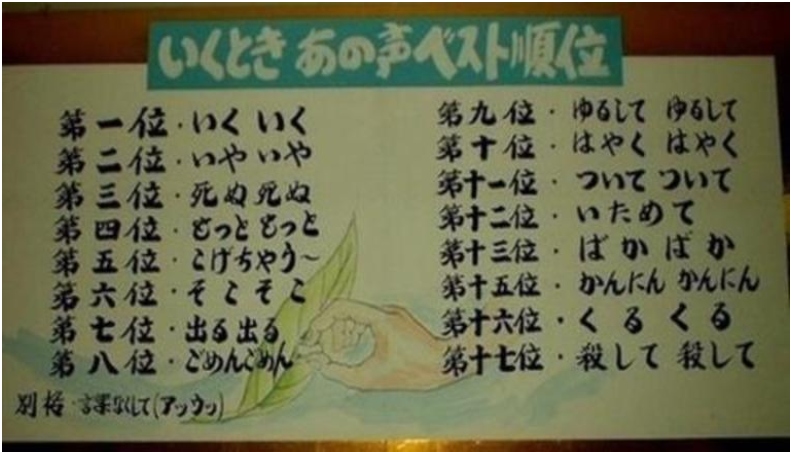 いくとき あの声ベスト順位
第一位・いく いく
第二位・いや いや
第三位・死ぬ 死ぬ
第四位・もっと もっと
第五位・こげちゃう～
第六位・そこ そこ
第七位・出る 出る
第八位・ごめんごめん
別格・言葉なくして(アッウッ)
第九位・ゆるして ゆるして
第十位・はやく はやく
第十一位・ついて ついて
第十二位・いためて
第十三位・ばか ばか
第十五位・かんにん かんにん
第十六位・くる くる
第十七位・殺して 殺して